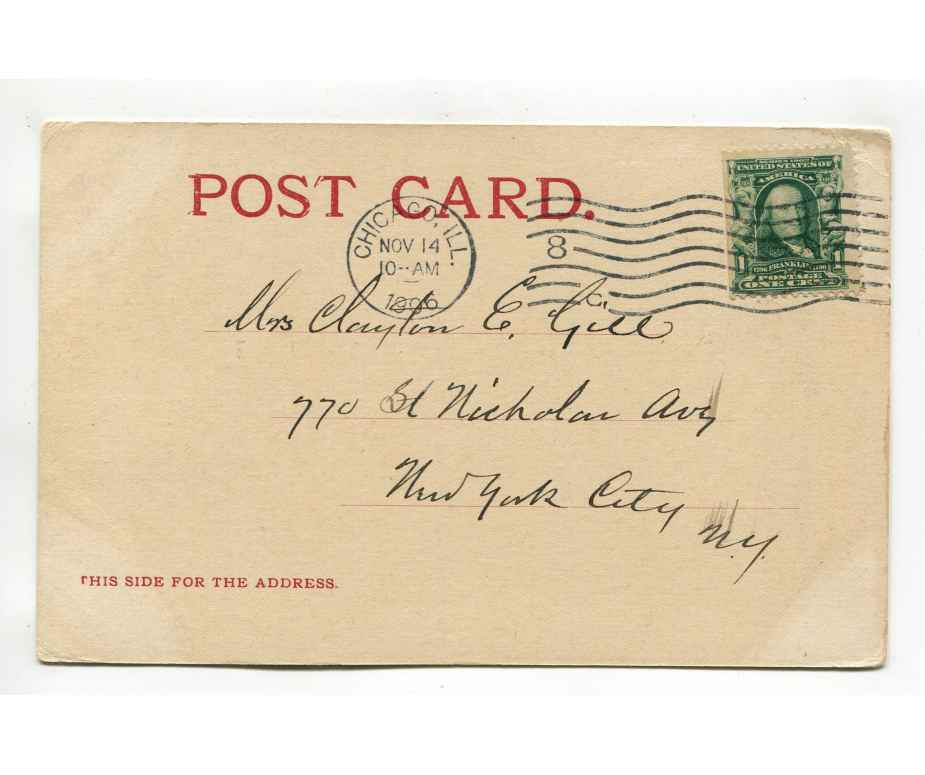 POST CARD.
SERIES 1902
UNITED STATES OF
AMERICA
1 FRANKLIN 1
POSTAGE
ONE CENT
CHICAGO, ILL.
NOV 14
10--AM
1906
8
C
Mrs Clayton E. Gill
770 St Nicholas Ave
New York City
N.Y.
THIS SIDE FOR THE ADDRESS.